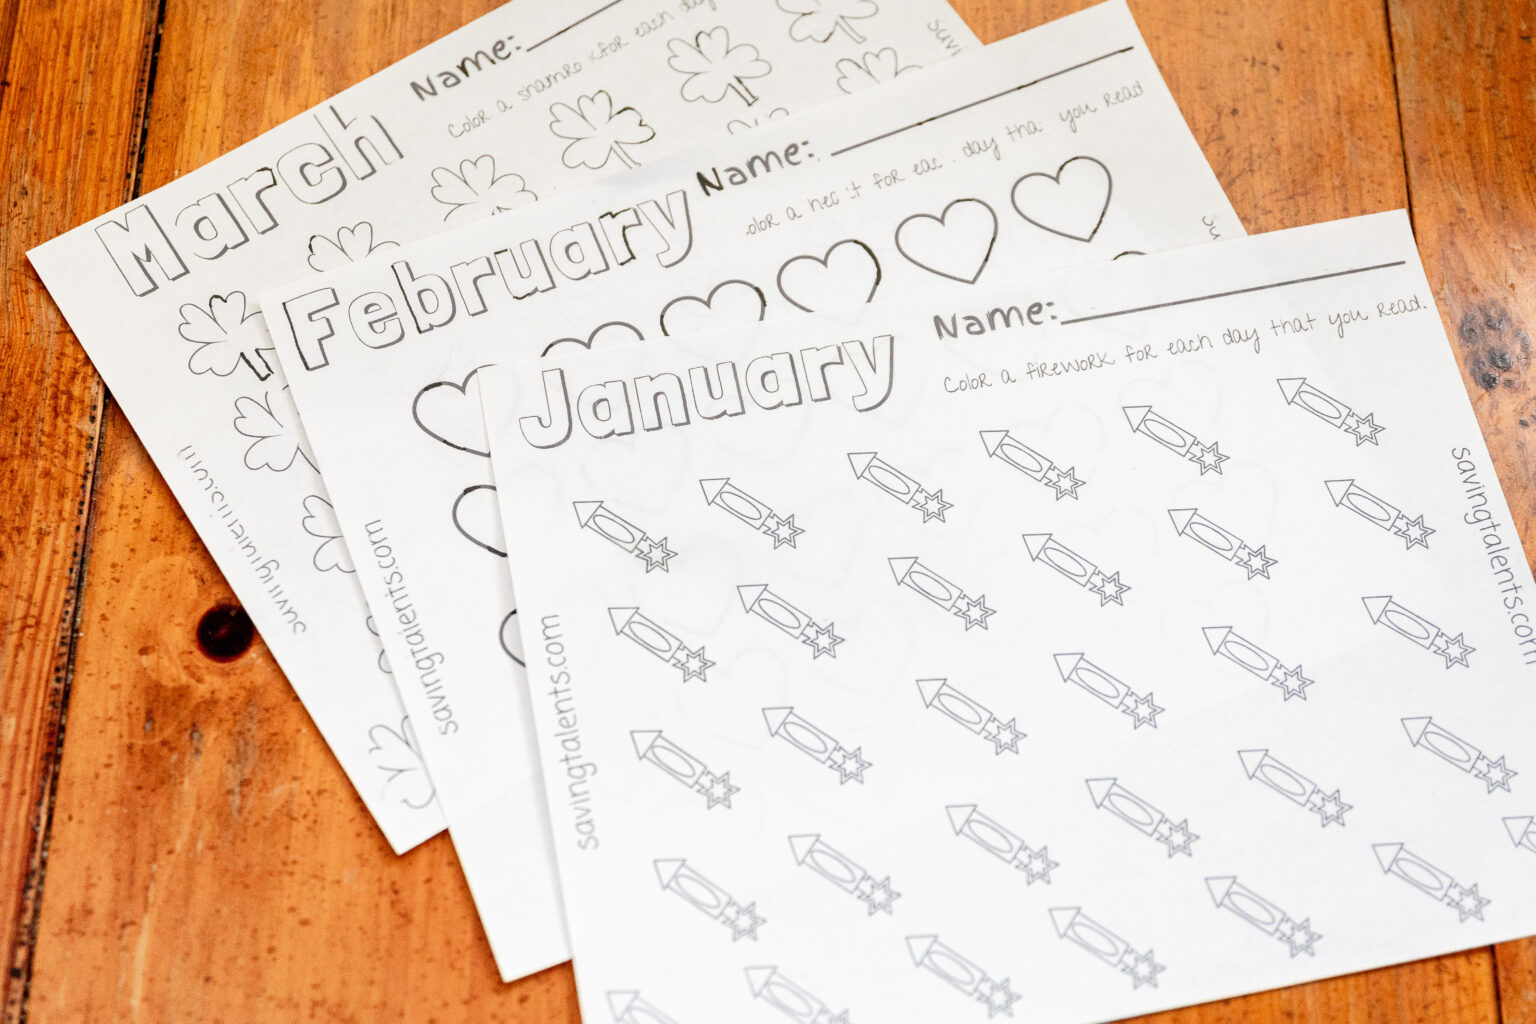 March
Name:
Color a shamro k for each day
savi
savingtalents.com
February
Name:
olor a hea t for eac day tha you read
savingtalents.com
January
Name:
Color a firework for each day that you read.
savingtalents.com
savingtalents.com